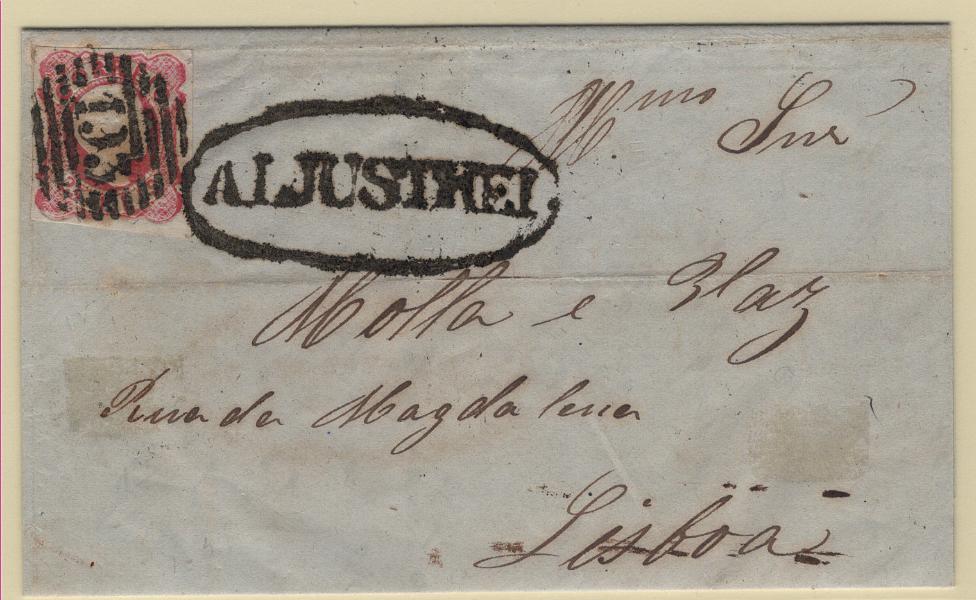 193
ALJUSTREL
Illmo Snr
Motta e Vlaz
Rua da Magdalena
Lisboa